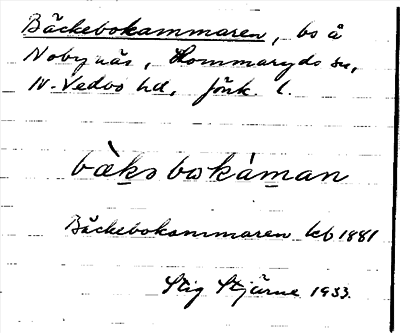 Bäckebokammaren, bo å
Nobynäs, Hommaryds sn,
N. Vedbo hd, Jönk. l.
bàksbokáman
Bäckebokammaren kb 1881
Stig Stjärne 1933.